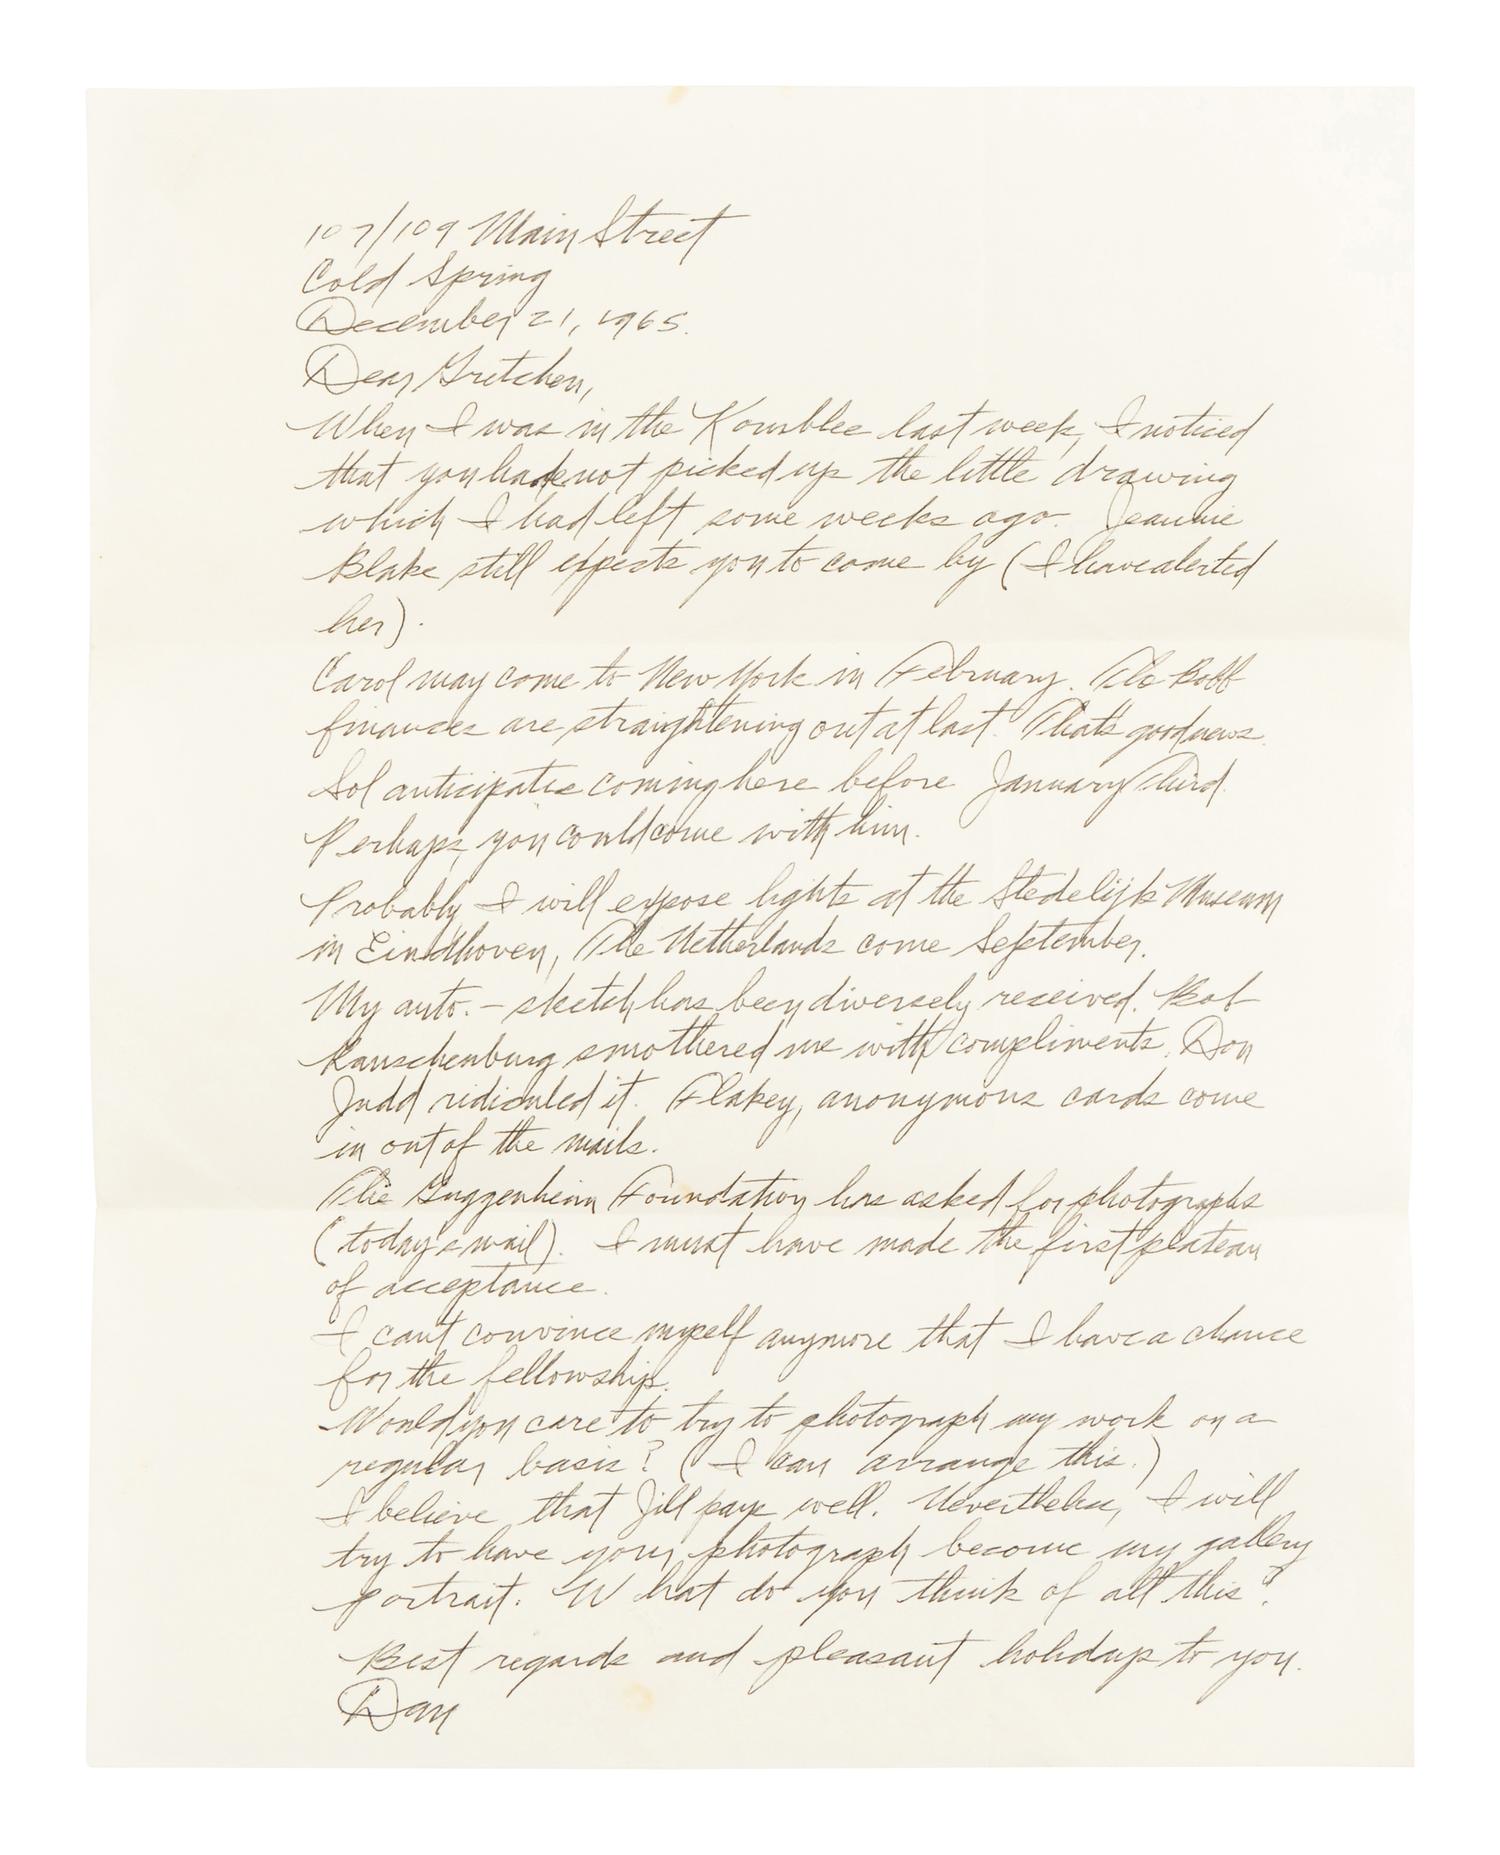 107/109 Main Street
Cold Spring
December 21, 1965.
Dear Gretchen,
When I was in the Kornblee last week, I noticed
that you had not picked up the little drawing
which I had left some weeks ago. Jeannie
Blake still expects you to come by (I have alerted
her).
Carol may come to New York in February. The
finances are straightening out at last. That's good news.
Sol anticipates coming here before January Third.
Perhaps, you could come with him.
Probably I will expose lights at the Stedelijk Museum
in Eindhoven, The Netherlands come September.
My auto. - sketch has been diversely received. Bob
Rauschenburg smothered me with compliments. Don
Judd ridiculed it. Flakey, anonymous cards come
in out of the mails.
The Guggenheim Foundation has asked for photographs
(today's mail). I must have made the first plateau
of acceptance.
I can't convince myself anymore that I have a chance
for the fellowship.
Would you care to try to photograph my work on a
regular basis? (I can arrange this.)
I believe that Jill pays well. Nevertheless, I will
try to have your photograph become my gallery
portrait. What do you think of all this?
Best regards and pleasant holidays to you.
Dan